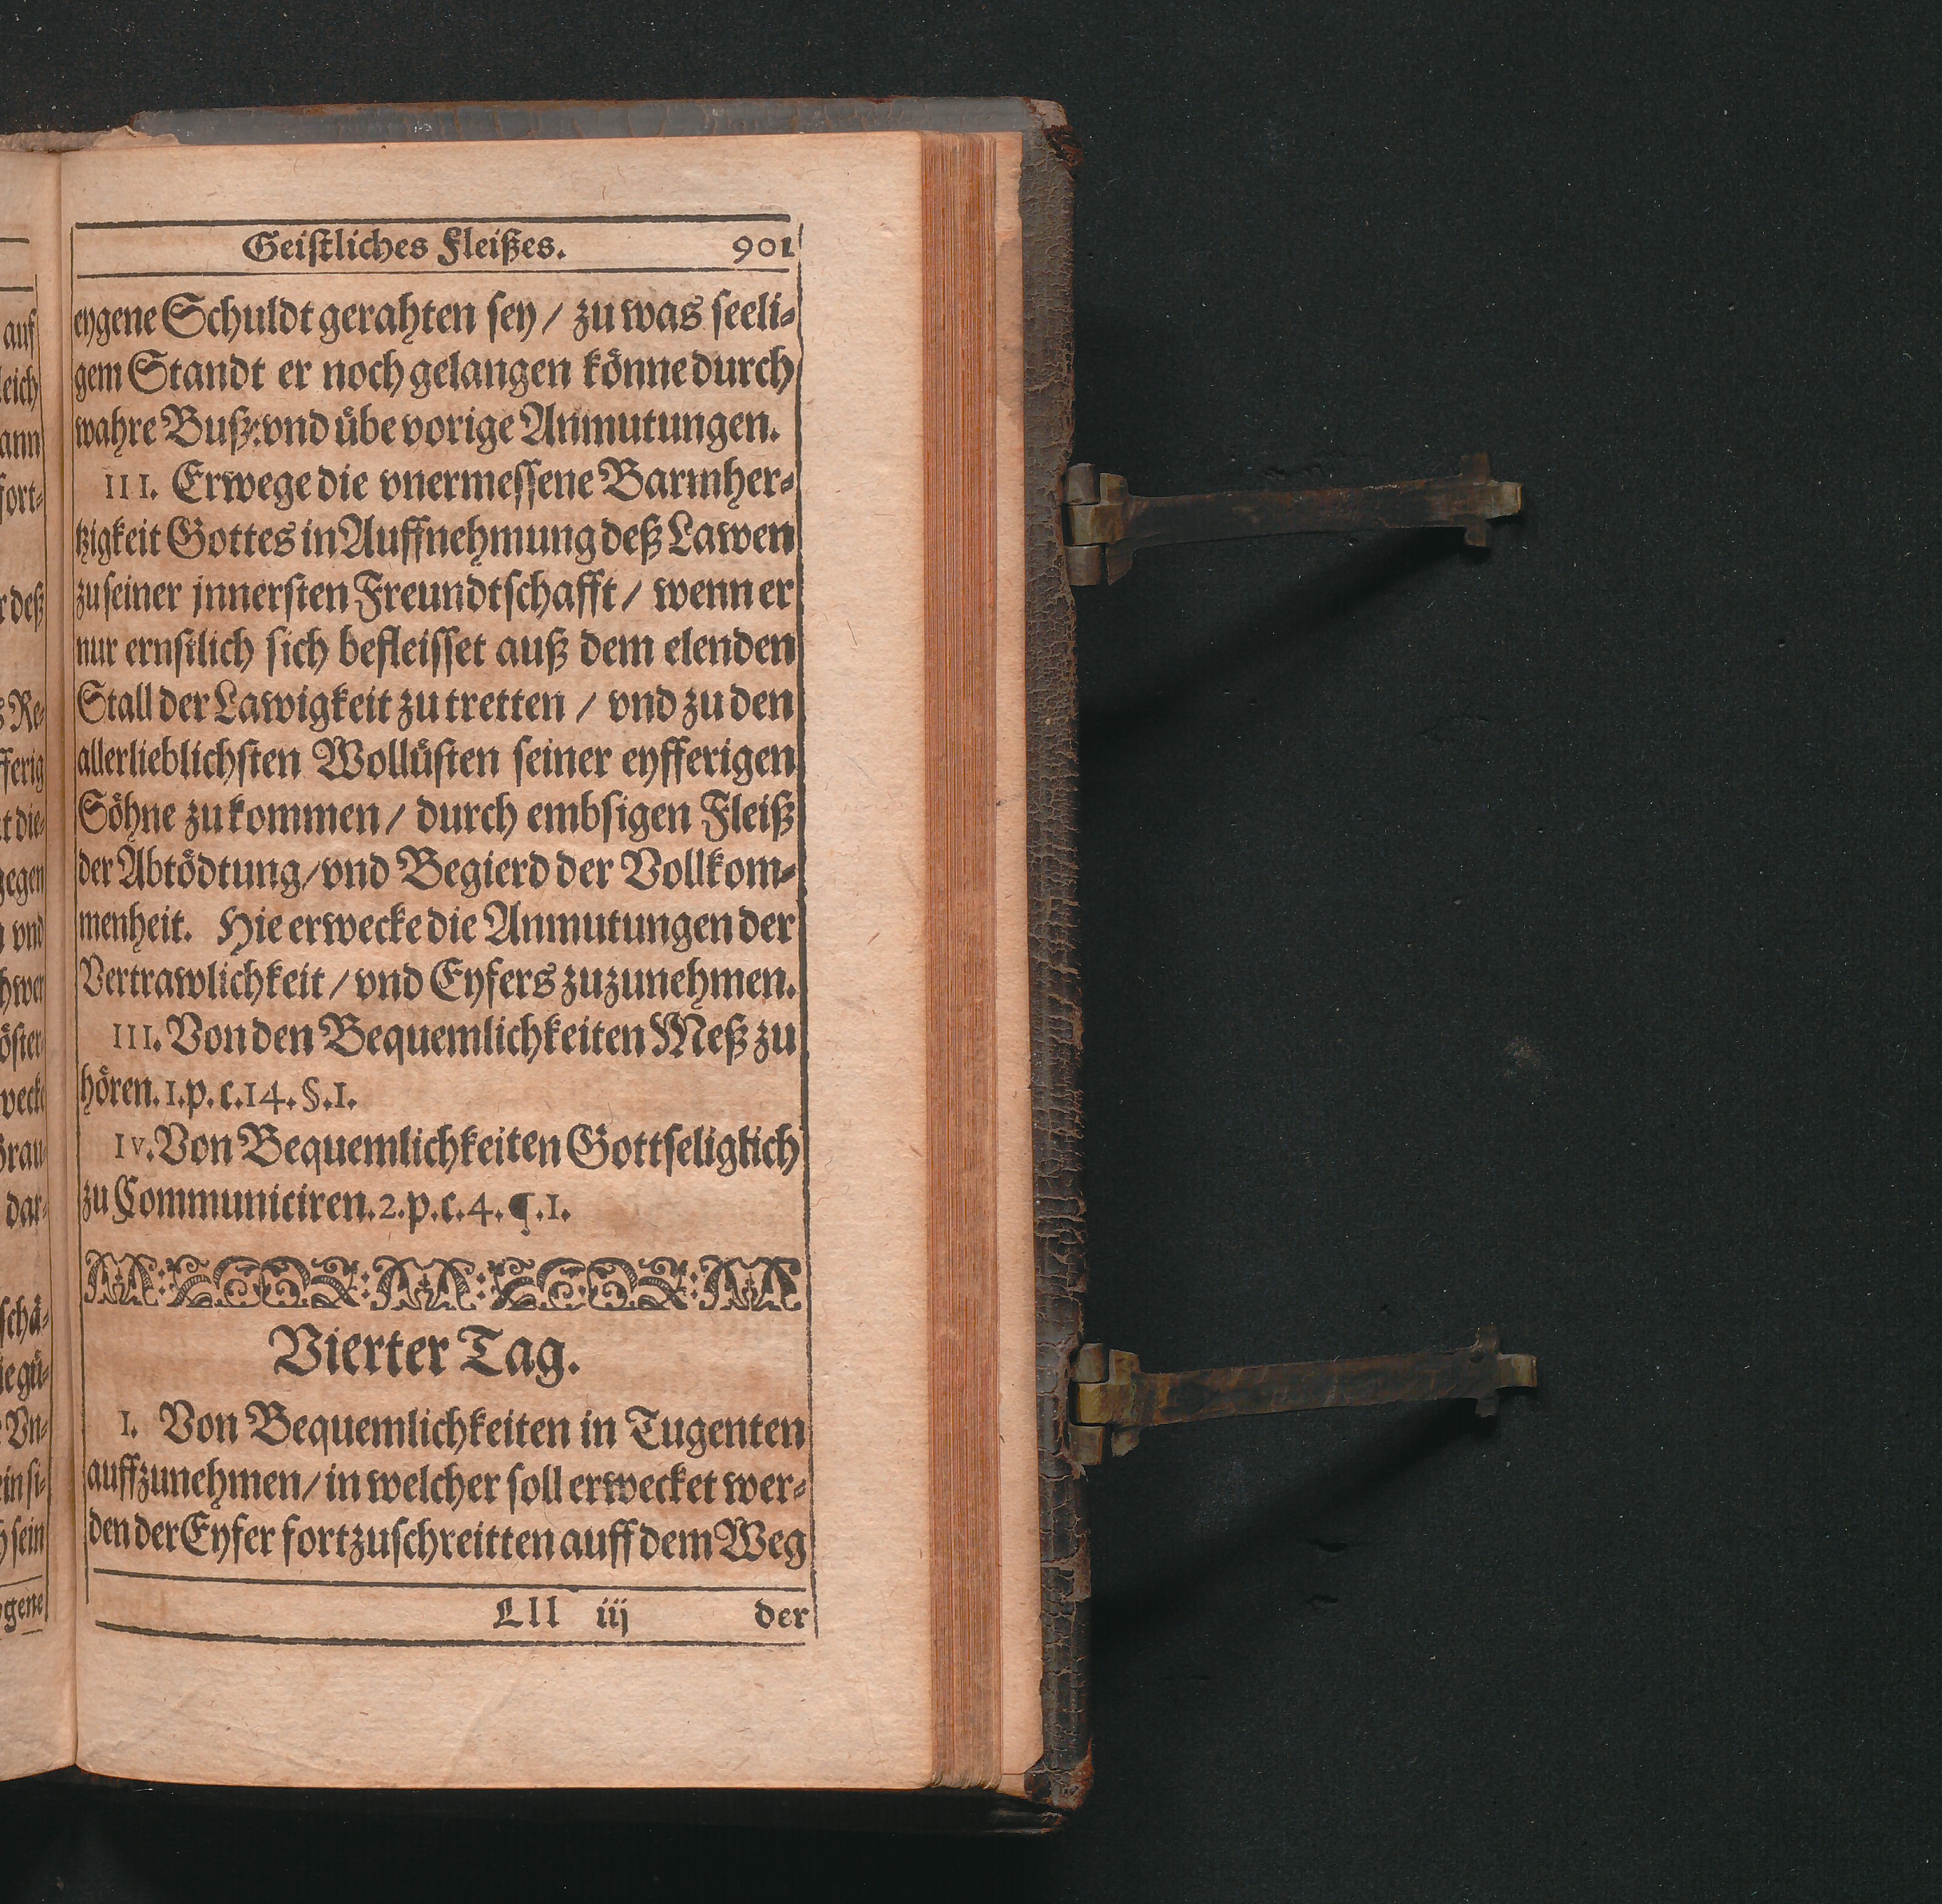 Geistliches Fleißes. 901
eygene Schuldt gerahten sey / zu was seeli-
gem Standt er noch gelangen könne durch
wahre Buß: vnd übe vorige Anmutungen.
III. Erwege die vnermessene Barmher-
tzigkeit Gottes in Auffnehmung deß Lawen
zu seiner jnnersten Freundtschafft / wenn er
nur ernstlich sich befleisset auß dem elenden
Stall der Lawigkeit zu tretten / vnd zu den
allerlieblichsten Wollüsten seiner eyfferigen
Söhne zu kommen / durch embsigen Fleiß
der Abtödtung / vnd Begierd der Vollkom-
menheit. Hie erwecke die Anmutungen der
Vertrawlichkeit / vnd Eyfers zuzunehmen.
III. Von den Bequemlichkeiten Meß zu
hören. 1. p. c. 14. §. 1.
IV. Von Bequemlichkeiten Gottseliglich
zu Communiciren. 2. p. c. 4. ¶. 1.
Vierter Tag.
I. Von Bequemlichkeiten in Tugenten
auffzunehmen / in welcher soll erwecket wer-
den der Eyfer fortzuschreitten auff dem Weg
Lll iij der
auf
leich
ann
fort-
r deß
s Re-
fferig
t die-
gegen
vnd
öster-
wecke
dar-
schä-
Vn-
ein si-
sein
gene